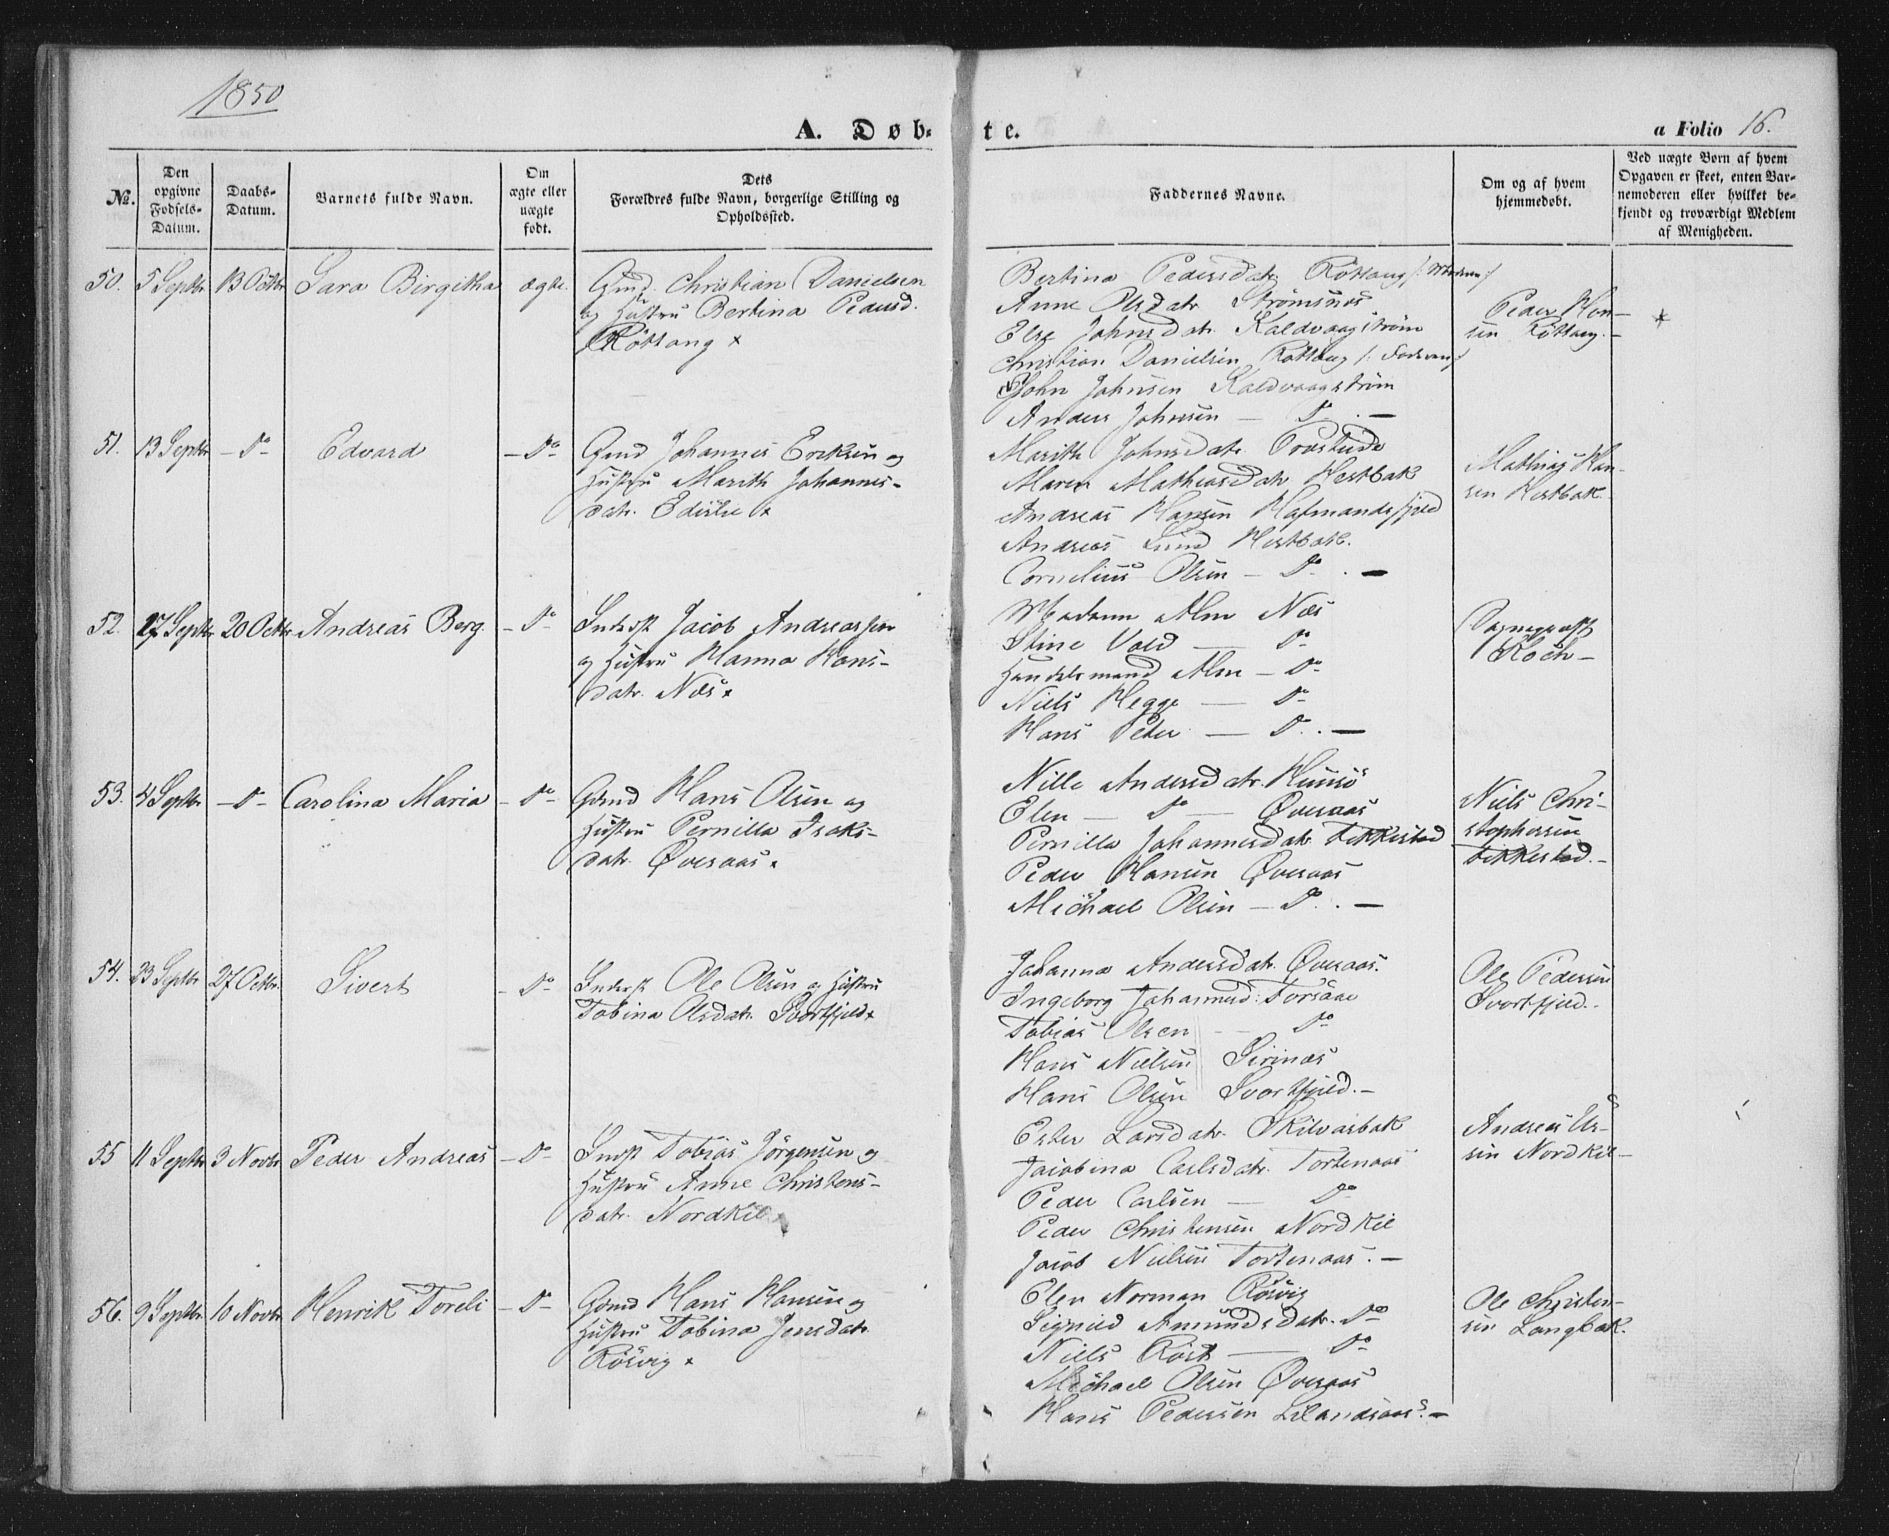 1850
A. Døb-
te.
a Folio 16.
No.
Den opgivne Fødsels-Datum.
Daabs-Datum.
Barnets fulde Navn.
Om ægte eller uægte født.
Dets Forældres fulde Navn, borgerlige Stilling og Opholdssted.
Faddernes Navne.
Om og af hvem hjemmedøbt.
Ved uægte Børn af hvem Opgaven er skeet, enten Barnemoderen eller hvilket bekjendt og troværdigt Medlem af Menigheden.
50. 5 Septbr 13 Octbr Sara Birgitha ægte. Gmd. Christian Danielsen
og Hustru Bertina Pedersd.
Røtsang x
Bertina Pedersdatr. Røtsang /: Moderen :/
Anne Olsdatr Strømsnes
Else Johnsdatr. Kaldvaagstrøm
Christian Danielsen Røtsang /: Faderen :/
John Johnsen Kaldvaagstrøm
Anders Johnsen — Do . —
Peder Han-
sen Røtsang. —
51. 13 Septbr — Do Edvard — Do Gmd Johannes Eriksen og
Hustru Marith Johannes-
datr. x
Marith Johnsdatr.
Maren Mathiasdatr Hestbak
Andreas Hansen Hafmandsfjeld
Andreas Lund Hestbak.
Cornelius Olsen — Do . —
Mathias Han-
sen Hestbak.
52. 27 Septbr 20 Octbr Andreas Berg. — Do Inderst Jacob Andreassen
og Hustru Hanna Hans-
datr. Næs x
Madam Alm Næs
Stine Vold — Do
Handelsmand Alm — Do
Niels Hegge — Do
Hans Peter — Do . —
Koch —
53. 4 Septbr — Do — Carolina Maria — Do Gmd Hans Olsen og
Hustru Pernilla Isaks-
datr. Øveraas x
Nille Andersdatr.
Elen — Do — Øveraas
Pernilla Johannesdatr. Fikkestad
Peder Hansen Øveraas
Michael Olsen — Do . —
Niels Chri-
stophersen
Fikkestad. —
54. 23 Septbr 27 Octbr. Sivert — Do Inderst Ole Olsen og Hustru
Tobina Olsdatr. Svortfjeld x
Johanna Andersdatr. Øveraas.
Ingeborg Johannesd: Torsaae
Tobias Olsen — Do
Hans Nielsen Sirinæs
Hans Olsen Svortfjeld. —
Ole Pedersen
Svortfjeld. —
55 11 Septbr 3 Novbr Peder Andreas — Do Inderst Tobias Jørgensen og
Hustru Anne Christens-
datr. Nordkil x
Ester Larsdatr. Skilvasbak
Jacobina Carlsdatr. Tortenaas
Peder Carlsen — Do
Peder Christensen Nordkil
Jacob Nielsen Tortenaas. —
Andreas
sen Nordkil —
56. 9 Septbr 10 Novbr Henrik Toreli — Do Gmd Hans Hansen og
Hustru Tobina Jensdatr.
Røsvig x
Elen Norman Røsvig
Signild Amundsdatr. Do
Niels Røst — Do
Michael Olsen Øveraas
Hans Pedersen Lilandsaas. —
Ole Christen-
sen Langbak.